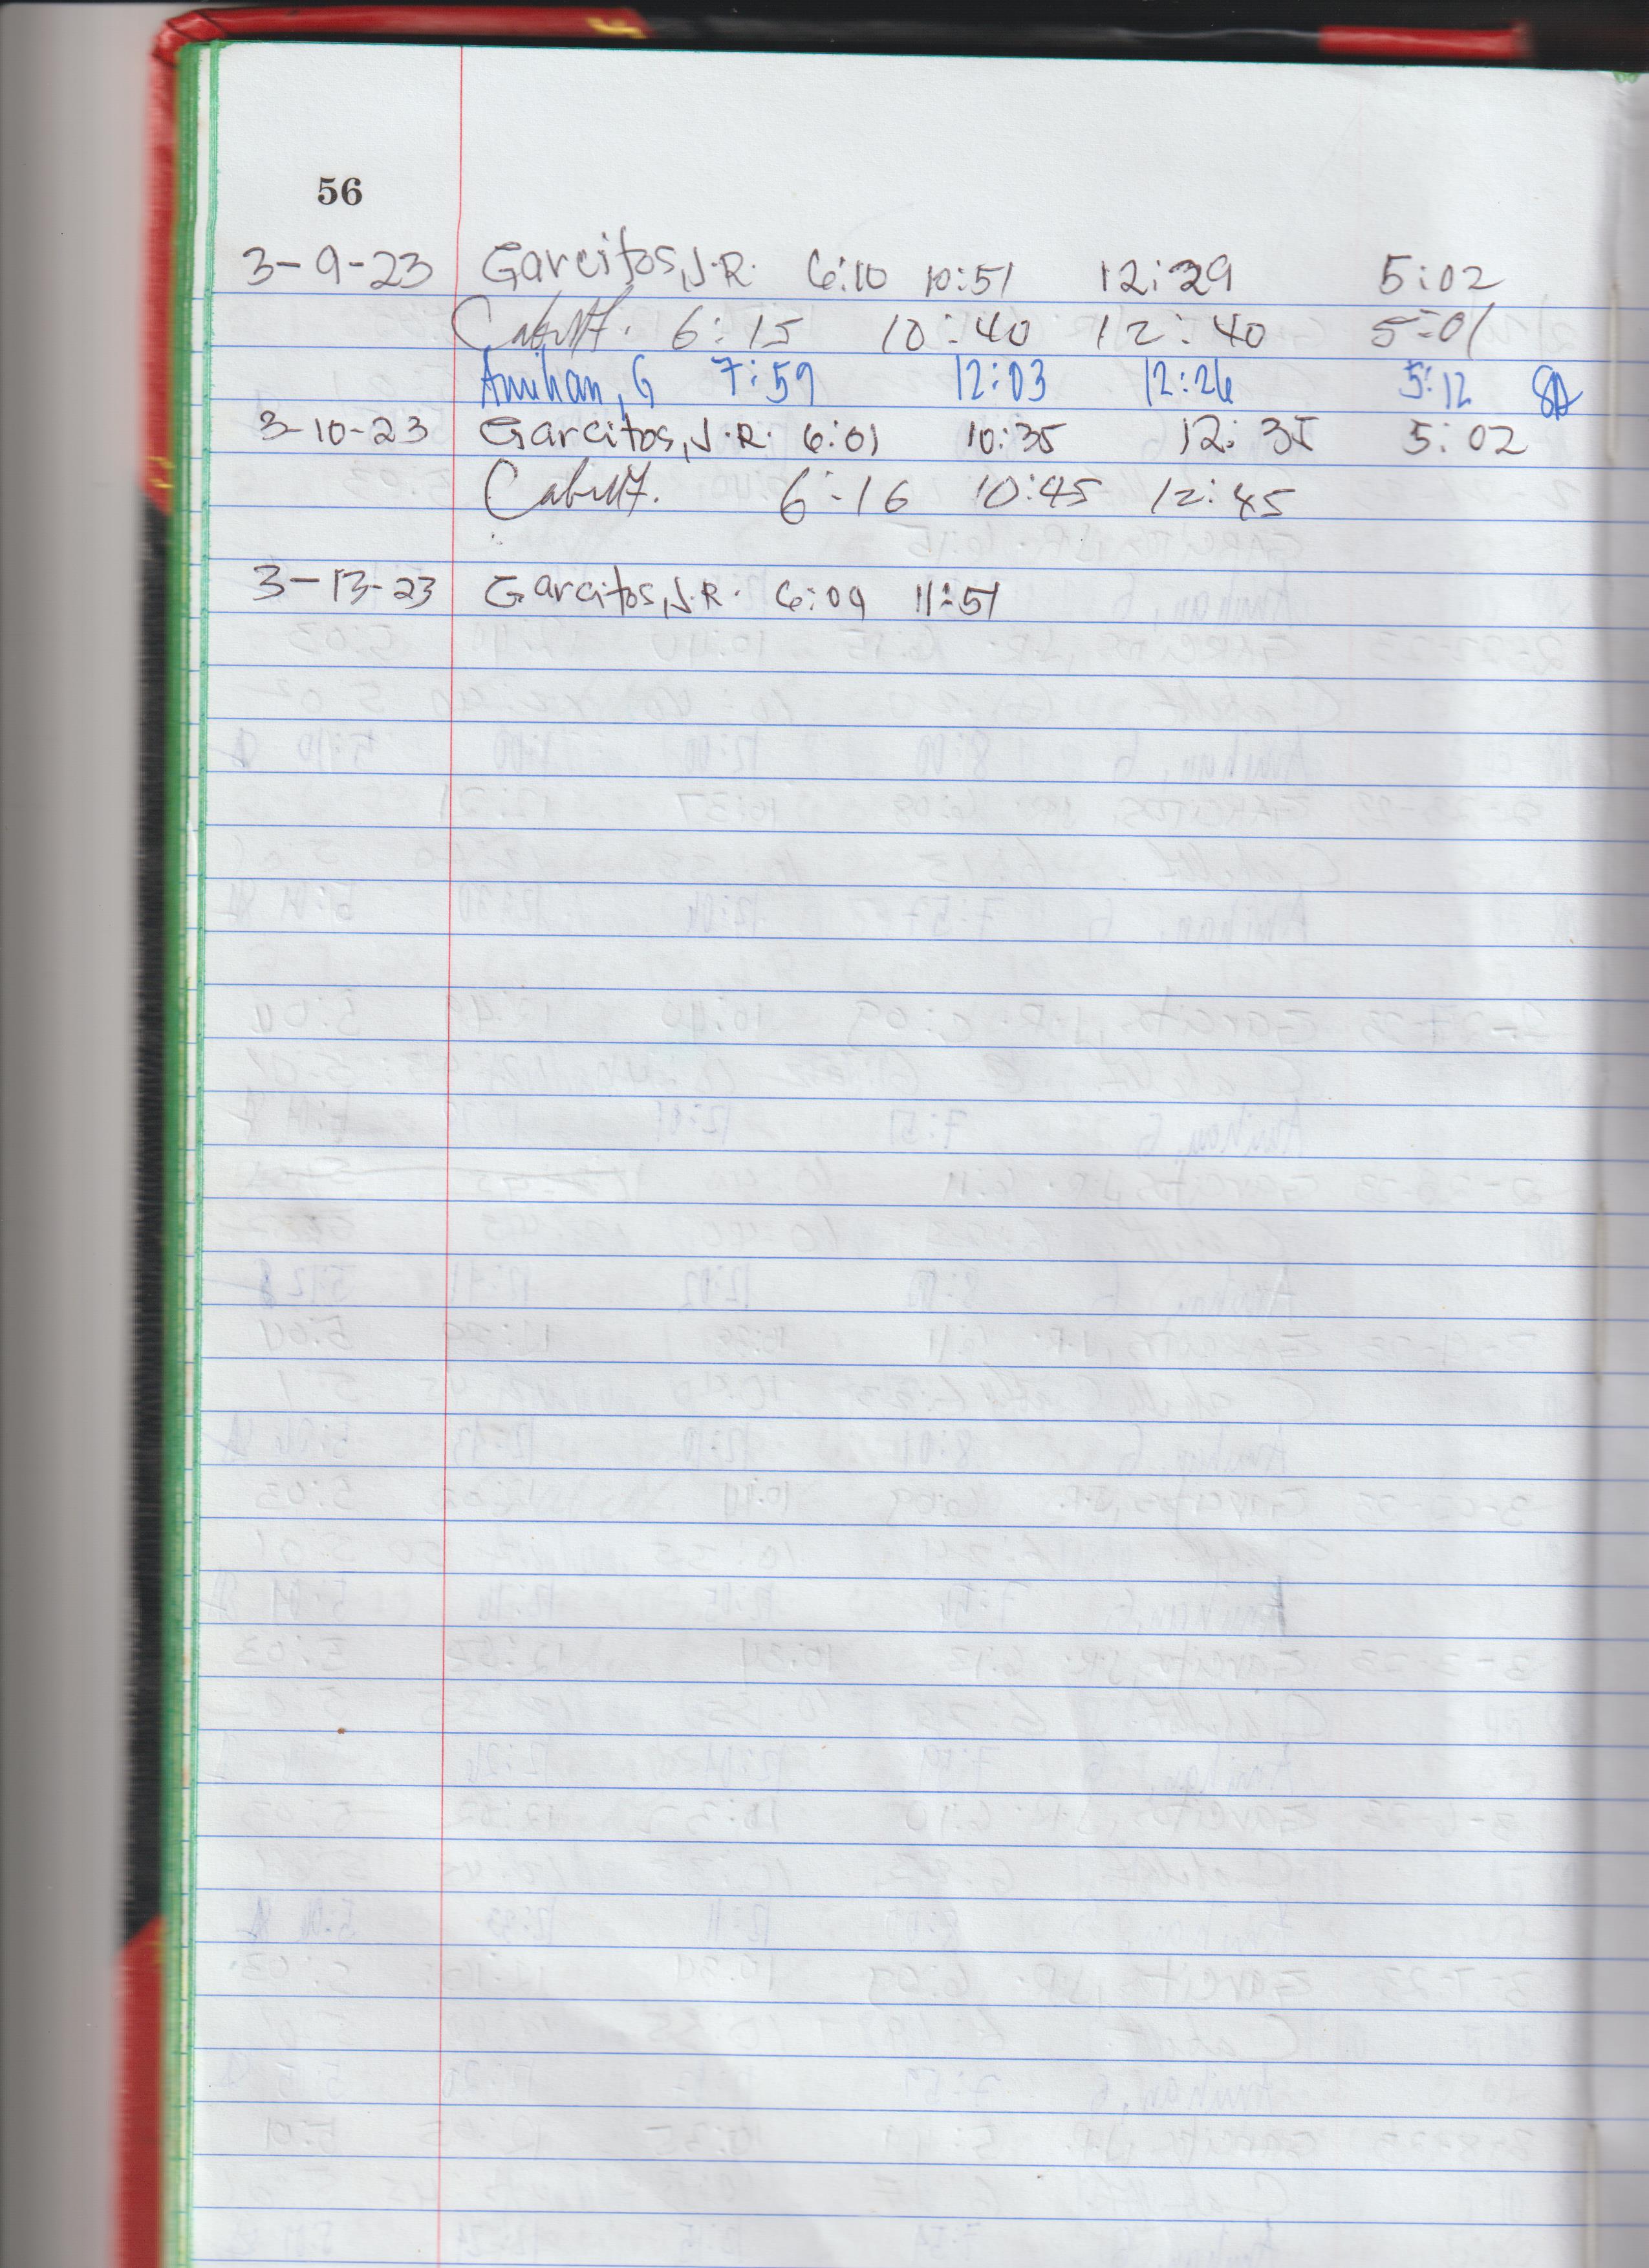 56
3-9-23 Garcitos, J.R. 6:10 10:51 12:29 5:02
6:15 10:40 12:40 5:01
Amihan, G 7:59 12:03 12:26 5:12
3-10-23 Garcitos, J.R. 6:01 10:35 12:35 5:02
6:16 10:45 12:45
3-13-23 Garcitos, J.R. 6:09 11:51